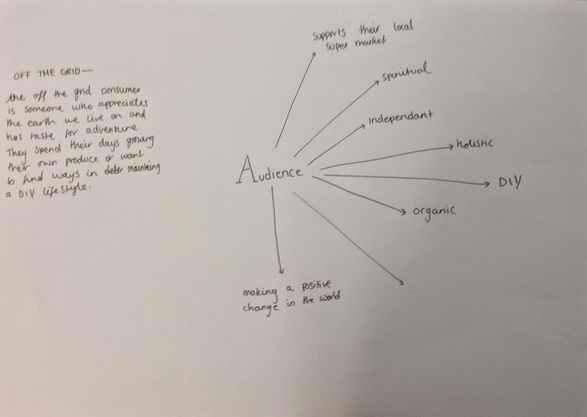 OFF THE GRID —
the off the grid consumer
is someone who appreciates
the earth we live on and
has taste for adventure.
They spend their days growing
their own produce or want
to find ways in
a DIY lifestyle.
supports their local
super market
spiritual
independant
holistic
Audience
DIY
organic
making a positive
change in the world